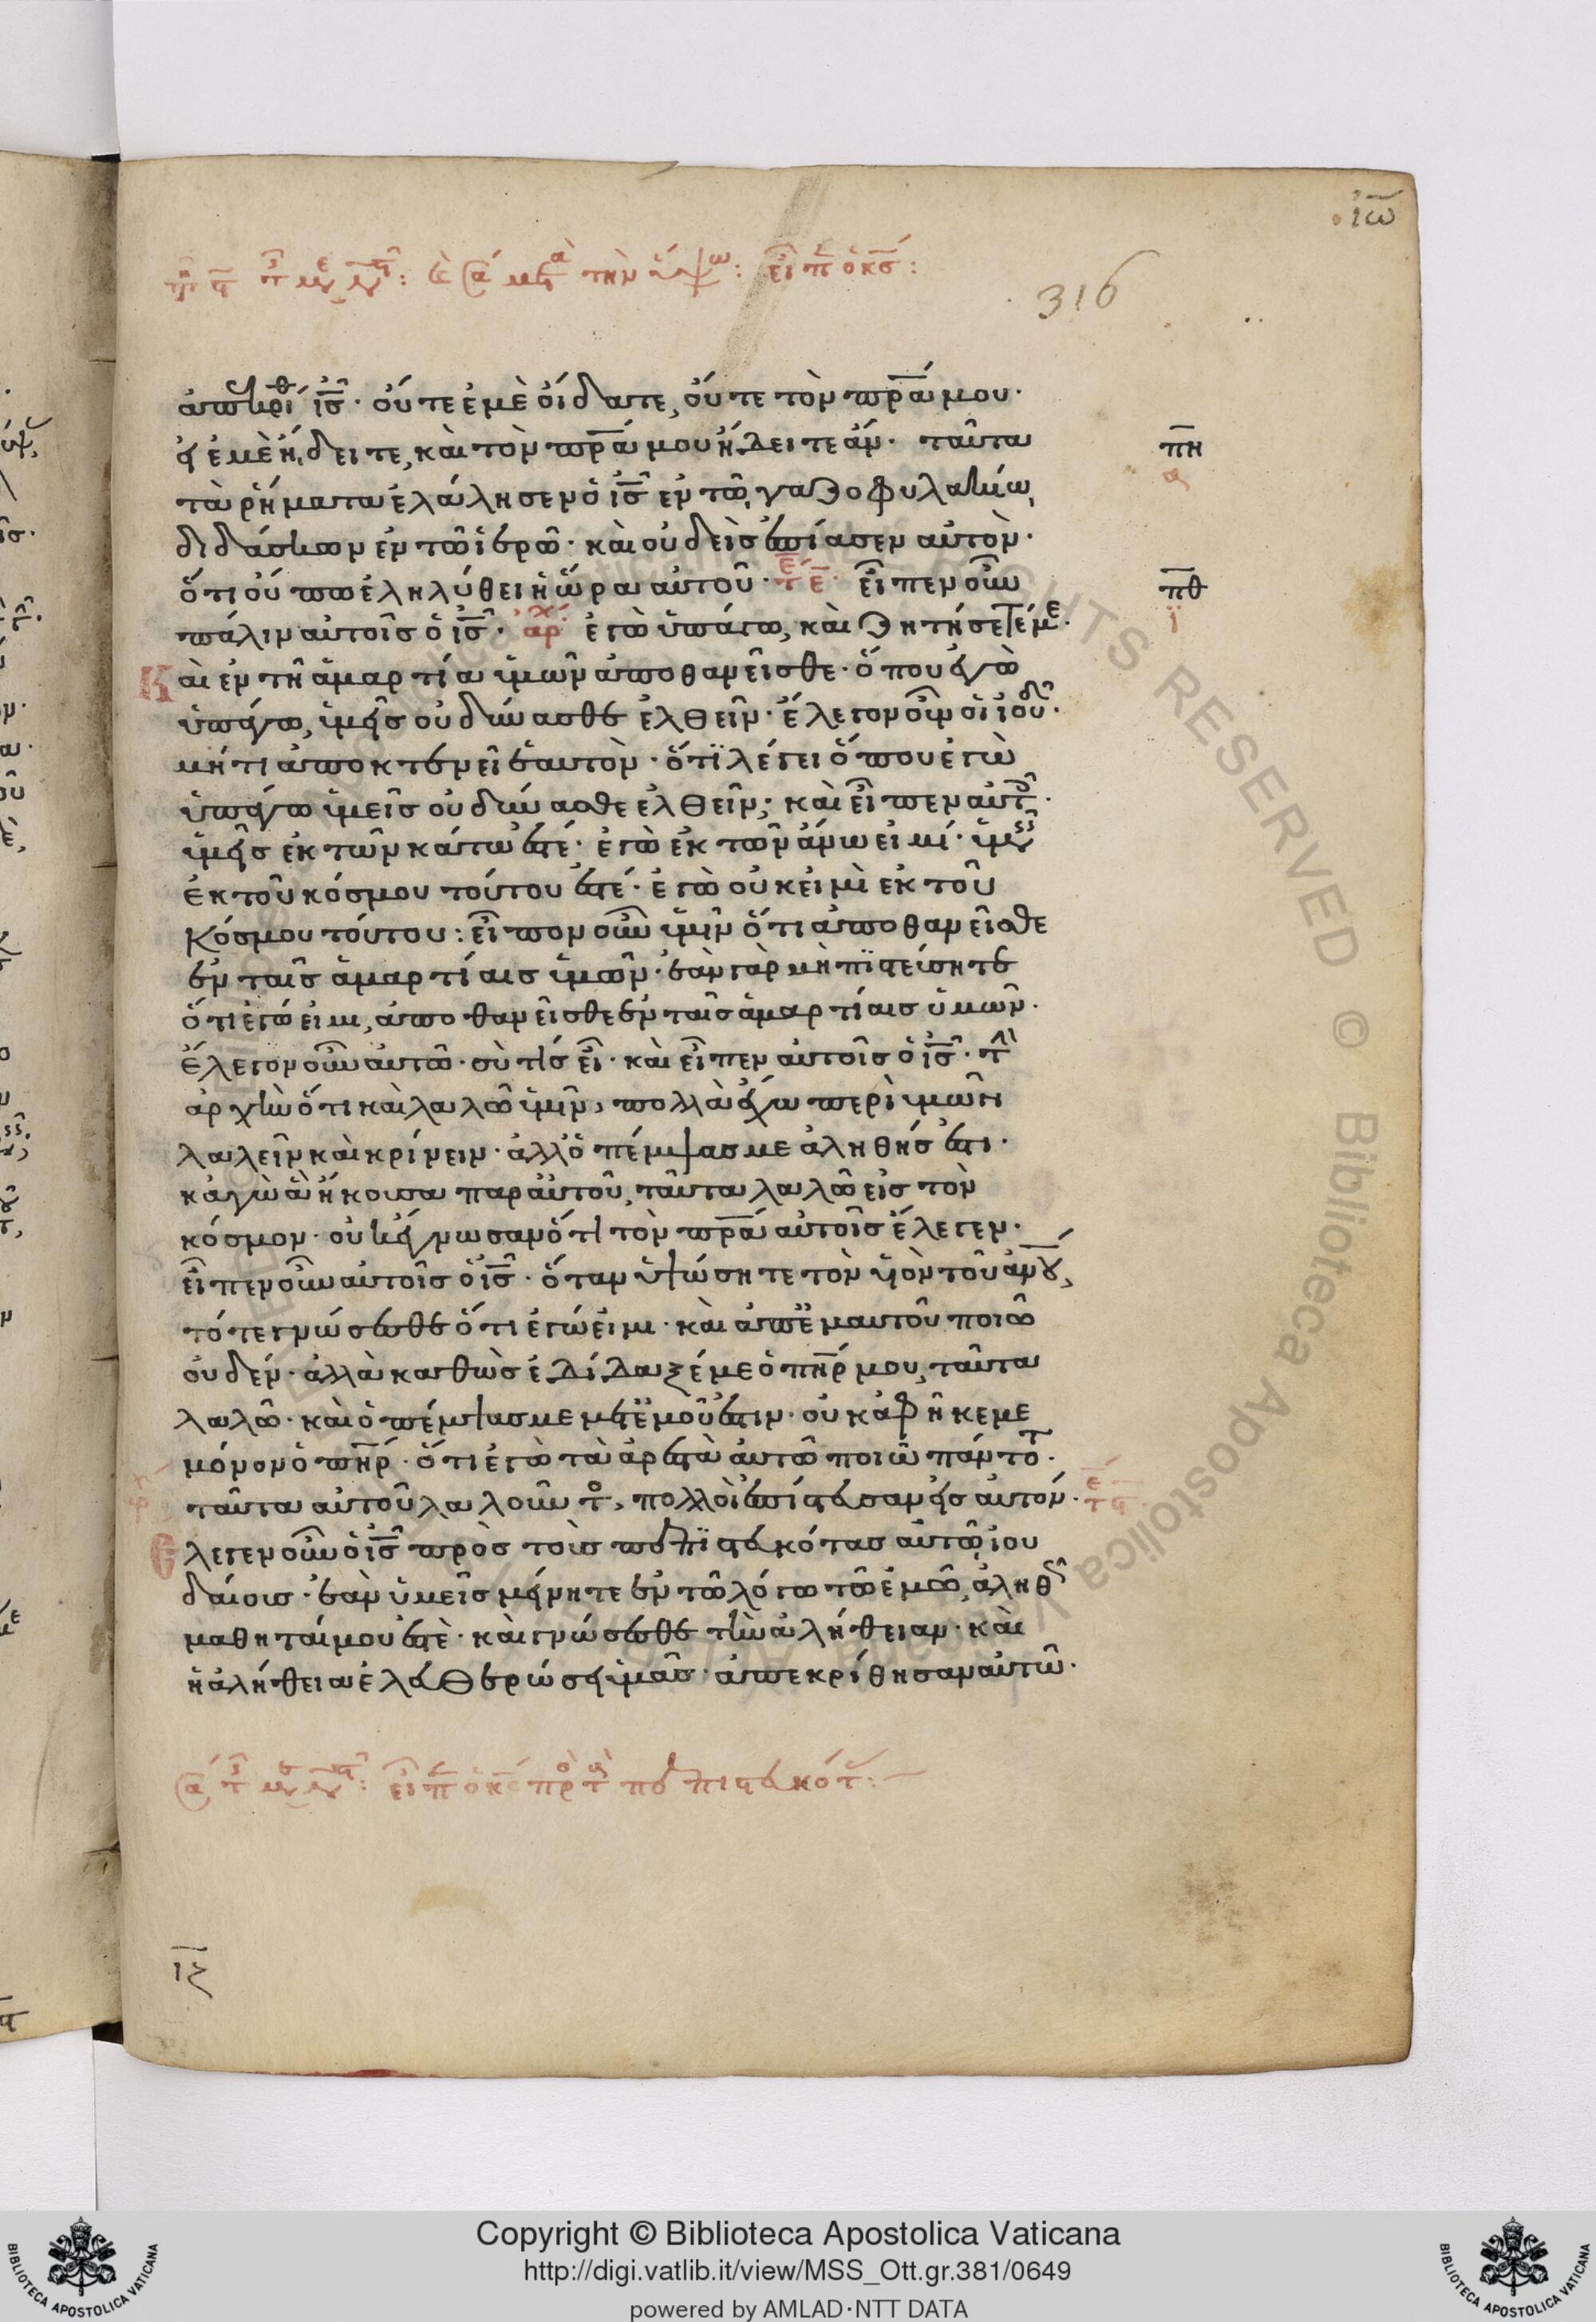 ἰω
316
ἀπεκρίθ ἰς· οὔτε ἐμὲ οἴδατε, οὔτε τὸν πρα μου·
εἰ ἐμὲ ἤδειτε, καὶ τὸν πρα μου ἤδειτε ἄν· ταῦτα
πη
τὰ ῥήματα ἐλάλησεν ὁ ἰς ἐν τῶ γαζοφυλακίω,
α
διδάσκων ἐν τῶ ἱερῶ· καὶ οὐδεὶς ἐπίασεν αὐτὸν·
ὅτι οὔπω ἐληλύθει ἡ ὥρα αὐτοῦ· τε ε εἶπεν οὖν
πθ
πάλιν αὐτοῖς ὁ ἰς· ἀρχ ἐγὼ ὑπάγω, καὶ ζητήσετέ με·
ϊ
Καὶ ἐν τῆ ἁμαρτία ὑμῶν ἀποθανεῖσθε· ὅπου ἐγὼ
ὑπάγω, ὑμεῖς οὐ δύνασθε ἐλθεῖν· ἔλεγον οὖν οἱ ἰουδ·
μήτι ἀποκτενεῖ ἑαυτὸν· ὅτϊ λέγει ὅπου ἐγὼ
ὑπάγω ὑμεῖς οὐ δύνασθε ἐλθεῖν; καὶ εἶπεν αὐτ·
ὑμεῖς ἐκ τῶν κάτω ἐστέ· ἐγὼ ἐκ τῶν ἄνω εἰμί· ὑμεῖς
ἐκ τοῦ κόσμου τούτου ἐστέ· ἐγὼ οὐκ εἰμὶ ἐκ τοῦ
κόσμου τούτου: εἶπον οὖν ὑμῖν ὅτι ἀποθανεῖσθε
ἐν ταῖς ἁμαρτίαις ὑμῶν· ἐὰν γὰρ μὴ πϊστεύσητε
ὅτι ἐγώ εἰμι, ἀποθανεῖσθε ἐν ταῖς ἁμαρτίαις ὑμῶν·
ἔλεγον οὖν αὐτῶ· σὺ τίς εἶ· καὶ εἶπεν αὐτοῖς ὁ ἰς· τὴν
ἀρχὴν ὅτι καὶ λαλῶ ὑμῖν, πολλὰ ἔχω περὶ ὑμῶν
λαλεῖν καὶ κρίνειν· ἀλλ ὁ πέμψας με ἀληθής ἐστι·
κἀγὼ ἃ ἤκουσα παρ αὐτοῦ, ταῦτα λαλῶ εἰς τὸν
κόσμον· οὐκ ἔγνωσαν ὅτι τὸν πρα αὐτοῖς ἔλεγεν·
εἶπεν οὖν αὐτοῖς ὁ ἰς· ὅταν ὑψώσητε τὸν υἱὸν τοῦ ἀνου,
τότε γνώσεσθε ὅτι ἐγώ εἰμι· καὶ ἀπ ἐμαυτοῦ ποιῶ
οὐδέν· ἀλλὰ καθὼς ἐδίδαξέ με ὁ πηρ μου, ταῦτα
λαλῶ· καὶ ὁ πέμψας με μετ ἐμοῦ ἐστιν· οὐκ ἀφῆκέ με
μόνον ὁ πηρ· ὅτι ἐγὼ τὰ ἀρεστὰ αὐτῶ ποιῶ πάντοτ·
ταῦτα αὐτοῦ λαλοῦντος, πολλοὶ ἐπίστευσαν εἰς αὐτόν·
Ἔλεγεν οὖν ὁ ἰς πρὸς τοὺς πεπϊστευκότας αὐτῶ ἰου
δαίους· ἐὰν ὑμεῖς μείνητε ἐν τῶ λόγω τῶ ἐμῶ, ἀληθῶς
μαθηταί μου ἐστὲ· καὶ γνώσεσθε τὴν ἀλήθειαν· καὶ
ἡ ἀλήθεια ἐλευθερώσει ὑμᾶς· ἀπεκρίθησαν αὐτῶ·
Copyright © Biblioteca Apostolica Vaticana
http://digi.vatlib.it/view/MSS_Ott.gr.381/0649
powered by AMLAD·NTT DATA